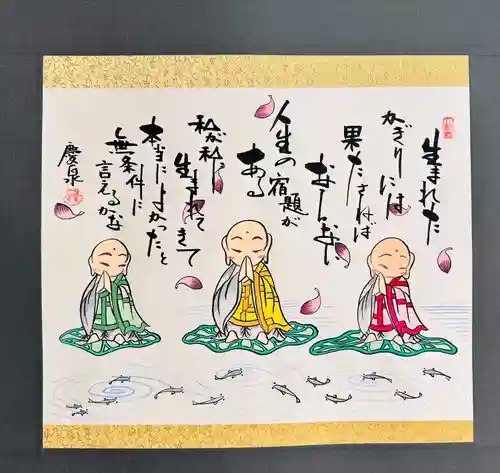 生まれた
かぎりには
果たさねば
ならない
人生の宿題が
ある
私が私に
生まれて
きて
本当によかったと
無条件に
言えるかな
慶泉